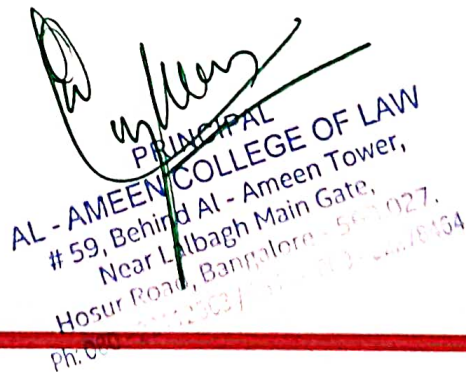 PRINCIPAL
AL - AMEEN COLLEGE OF LAW
# 59, Behind Al - Ameen Tower,
Near Lalbagh Main Gate,
Hosur Road, Bangalore - 560 027.
Ph: